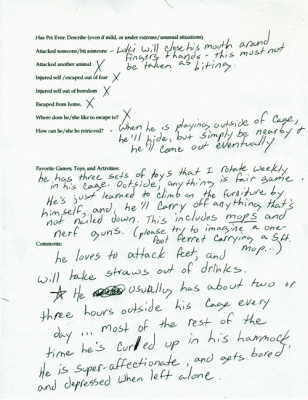 Has Pet Ever: Describe (even if mild, or under extreme/unusual situations)
Attacked someone/bit someone - Loki will close his mouth around
fingers, hands - this must not
be taken as biting.
Attacked another animal X
Injured self /escaped out of fear X
Injured self out of boredom X
Escaped from home, X
Where does he/she like to escape to? X
How can he/she be retrieved? - When he is playing outside of cage,
he'll hide, but simply be nearby &
he'll come out eventually
Favorite Games, Toys, and Activities:
he has three sets of toys that I rotate weekly
in his cage. Outside, anything is fair game.
He's just learned to climb on the furniture by
himself, and he'll carry off anything that's
not nailed down. This includes mops and
nerf guns. (please try to imagine a one-
foot ferret carrying a 5ft.
mop...)
Comments:
he loves to attack feet, and
will take straws out of drinks.
He usually has about two or
three hours outside his cage every
day... most of the rest of the
time he's curled up in his hammock.
He is super-affectionate, and gets bored
and depressed when left alone.